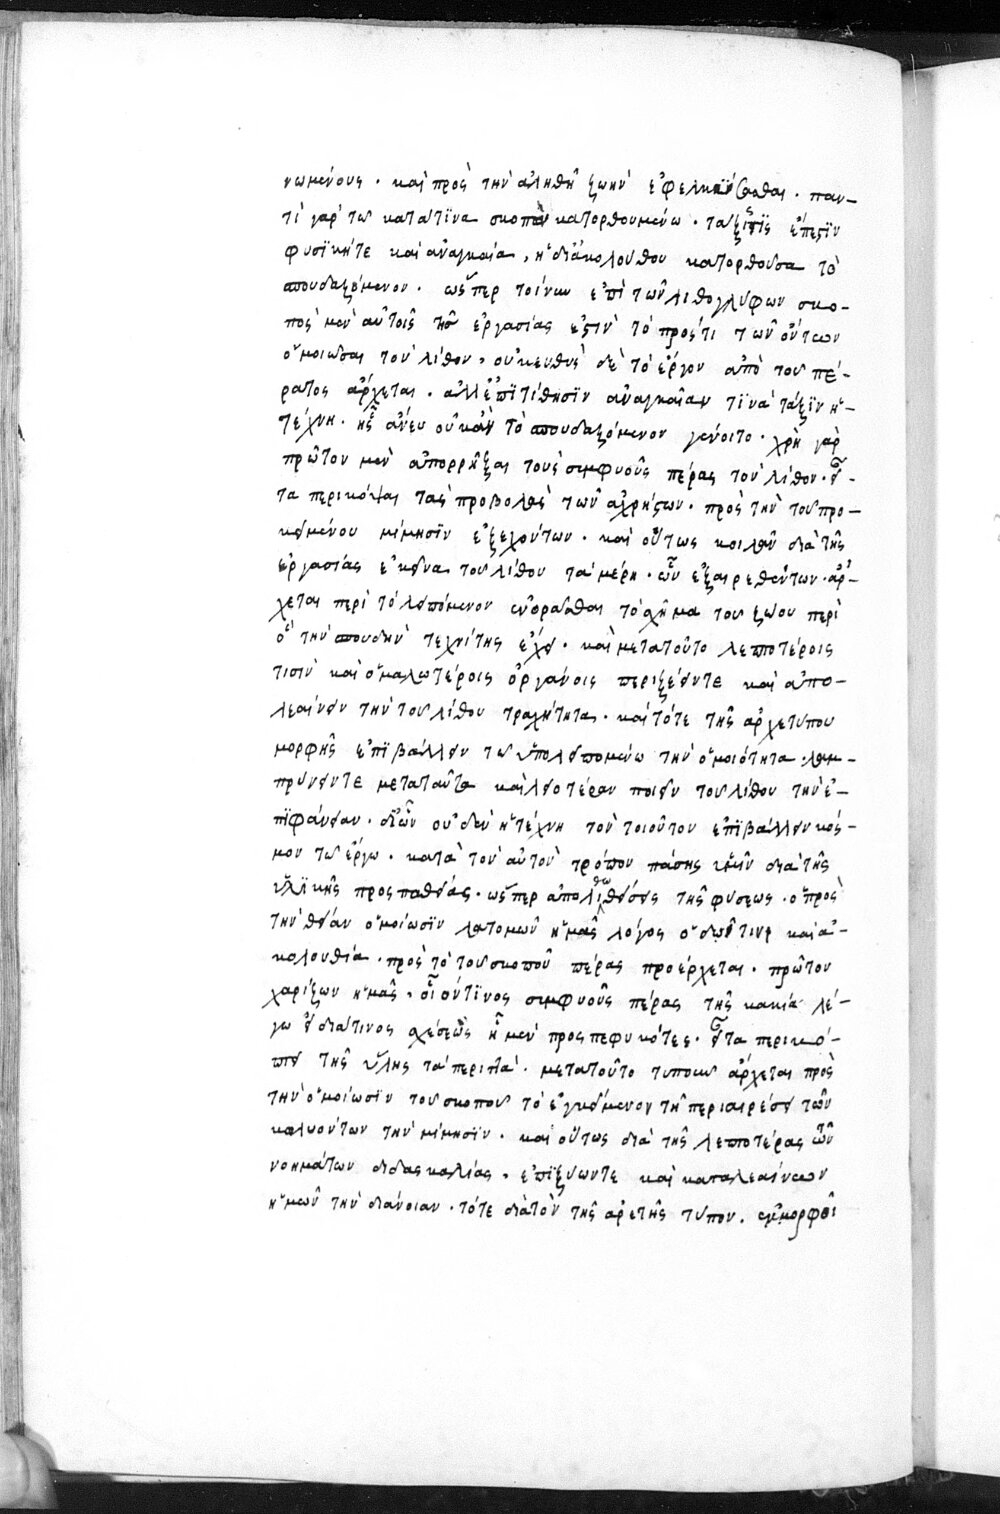 νωμένους · καὶ πρὸς τὴν ἀληθῆ ζωὴν ἐφελκύσασθαι · παν-
τὶ γὰρ τῶ κατά τϊνα σκοπὸν κατορθουμένω · τάξις τίς ἔπεστϊν
φυσϊκή τε καὶ ἀναγκαία, ἡ διακολούθου κατορθοῦσα τὸ
σπουδαζόμενον · ὥσπερ τοίνυν ἐπὶ τῶν λιθογλύφων σκο-
πὸς μὲν αὐτοῖς τῆς ἐργασίας ἐστὶν τὸ πρός τι τῶν ὄντων
ὁμοιῶσαι τὸν λίθον, οὐκ εὐθὺς δὲ τὸ ἔργον ἀπὸ τοῦ πέ-
ρατος ἄρχεται · ἀλλ' ἐπϊτίθησϊν ἀναγκαίαν τϊνὰ τάξϊν ἡ
τέχνη · ἧς ἄνευ οὐκ ἂν τὸ σπουδαζόμενον γένοιτο · χρὴ γὰρ
πρῶτον μὲν ἀπορρῆξαι τοὺς συμφυοῦς πέρας τὸν λίθον · εἶ-
τα περικόψαι τὰς προβολὰς τῶν ἀχρήστων · πρὸς τὴν τοῦ προ-
κειμένου μίμησϊν ἐξεχόντων · καὶ οὕτως κοιλᾶν διὰ τῆς
ἐργασίας ἐκεῖνα τοῦ λίθου τὰ μέρη · ὧν ἐξαιρεθέντων · ἄρ-
χεται περὶ τὸ λειπόμενον ἐνορᾶσθαι τὸ σχῆμα τοῦ ζώου περὶ
ὃ τὴν σπουδὴν τεχνίτης ἔχει · καὶ μετὰ τοῦτο λεπτοτέροις
τισὶν καὶ ὁμαλωτέροις ὀργάνοις περιξέειν τε καὶ ἀπο-
λεαίνειν τὴν τοῦ λίθου τραχύτητα · καὶ τότε τῆς ἀρχετύπου
μορφῆς ἐπϊβάλλειν τῶ ὑπολειπομένω τὴν ὁμοιότητα · λαμ-
πρύνειν τε μετὰ ταῦτα καὶ λειοτέραν ποιεῖν τοῦ λίθου τὴν ἐ-
πϊφάνειαν · δι' ὧν οὐδὲν ἡ τέχνη τὸν τοιοῦτον ἐπϊβάλλειν κόσ-
μον τῶ ἔργω · κατὰ τὸν αὐτὸν τρόπον πάσης ἡμῖν διὰ τῆς
ὑλϊκῆς προσπαθείας · ὥσπερ ἀπολιθωθείσης τῆς φύσεως · ὁ πρὸς
τὴν θείαν ὁμοίωσϊν λατομῶν ἡμᾶς λόγος ὁδῶ τινι καὶ ἀ-
κολουθία · πρὸς τὸ τοῦ σκοποῦ πέρας προέρχεται · πρῶτον
χωρίζων ἡμᾶς · οἷ οὗτϊνος συμφυοῦς πέρας τῆς κακία λέ-
γω εἶ διά τινος σχέσεως ᾗ μὲν προσπεφυκότες · εἶτα περικό-
πτει τῆς ὕλης τὰ περιττά · μετὰ τοῦτο τυποῦν ἄρχεται πρὸς
τὴν ὁμοίωσϊν τοῦ σκοποῦ τὸ ἐγκείμενον τῆ περιαιρέσει τῶν
κωλυόντων τὴν μίμησϊν · καὶ οὕτως διὰ τῆς λεπτοτέρας τῶν
νοημάτων διδασκαλίας, ἐπϊξύων τε καὶ καταλεαίνων
ἡμῶν τὴν διάνοιαν · τότε διὰ τὸν τῆς ἀρετῆς τύπον · ἐνμορφοῖ